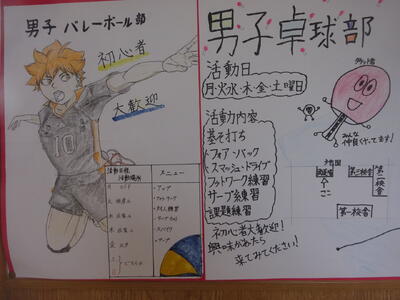 男子 バレーボール 部
初心者
大歓迎
10
活動日程
活動場所
メニュー
・アップ
・フットワーク
・対人練習
・サーブカット
・スパイク
・ゲーム
月
火
水
木
金
土
日
男子卓球部
活動日
月・火・水・木・金・土曜日
活動内容
基そ打ち
・フォア・バック
・スマッシュ・ドライブ
フットワーク練習
サーブ練習
課題練習
初心者大歓迎!
興味があたら
来てみてください!
みんな
仲良くやってます!
ここ
第一校舎
第二校舎